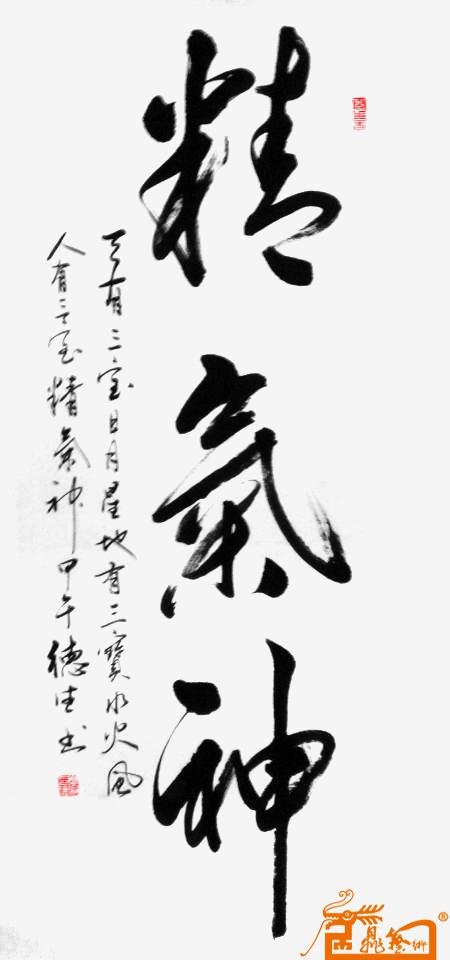 精氣神
天有三宝日月星地有三寳水火風
人有三宝精氣神甲午德生书